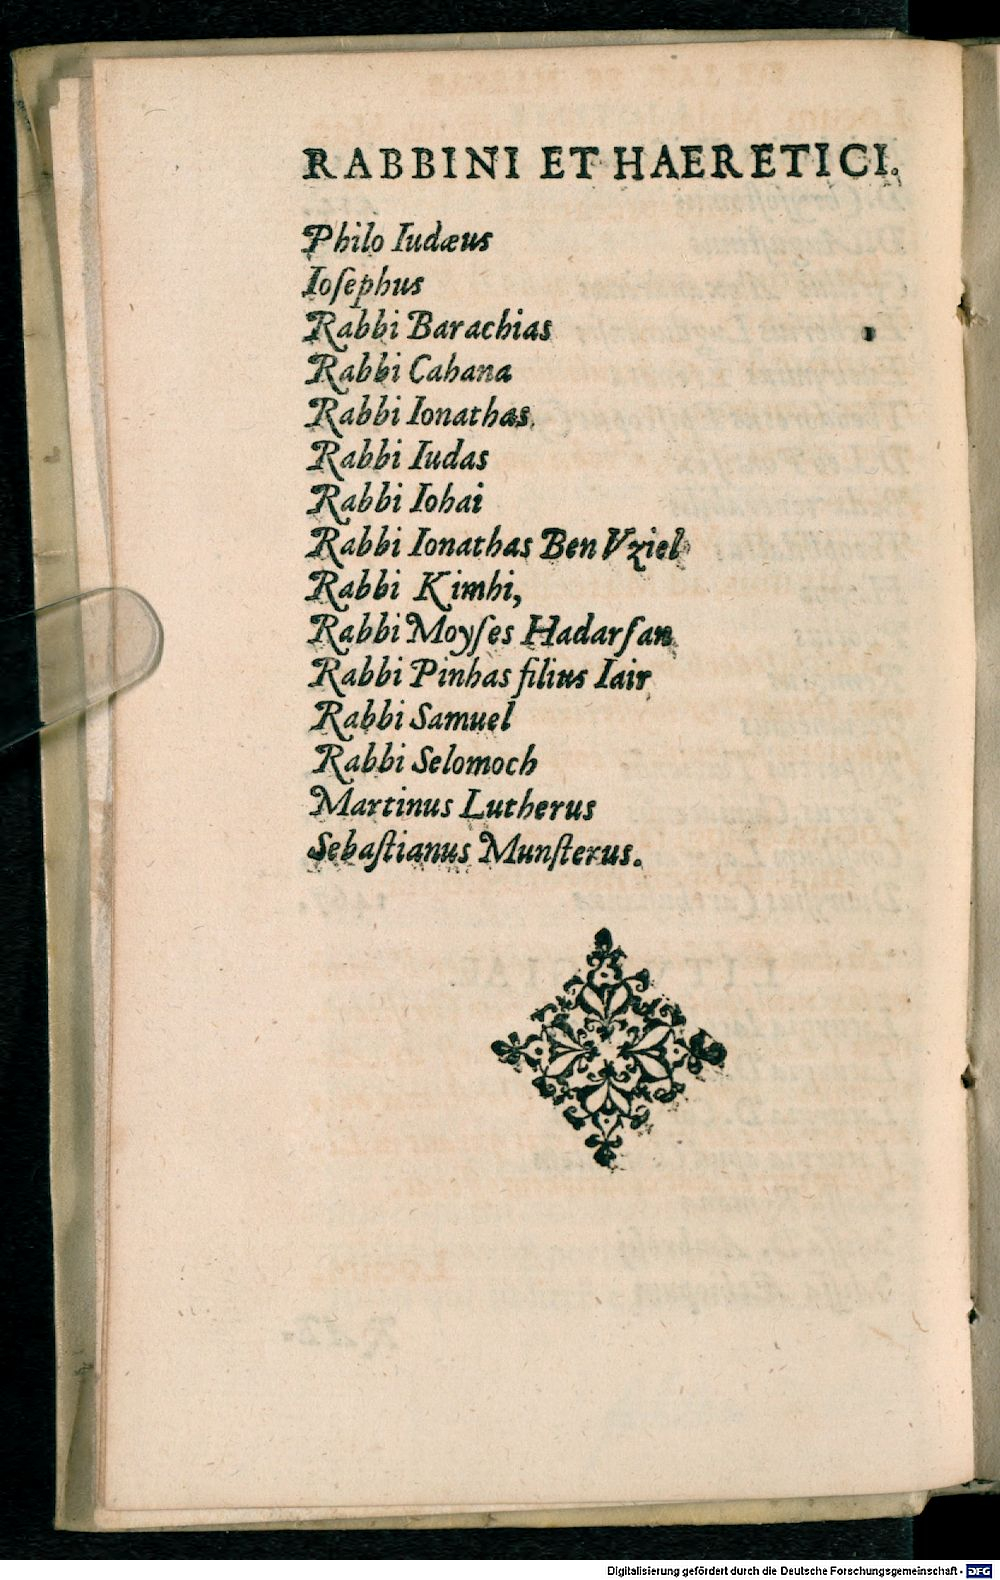 RABBINI ET HAERETICI.
Philo Iudæus
Ioſephus
Rabbi Barachias
Rabbi Cahana
Rabbi Ionathas
Rabbi Iudas
Rabbi Iohai
Rabbi Ionathas Ben Vziel
Rabbi Kimhi,
Rabbi Moyſes Hadarſan
Rabbi Pinhas filius Iair
Rabbi Samuel
Rabbi Selomoch
Martinus Lutherus
Sebaſtianus Munſterus.
Digitalisierung gefördert durch die Deutsche Forschungsgemeinschaft - DFG